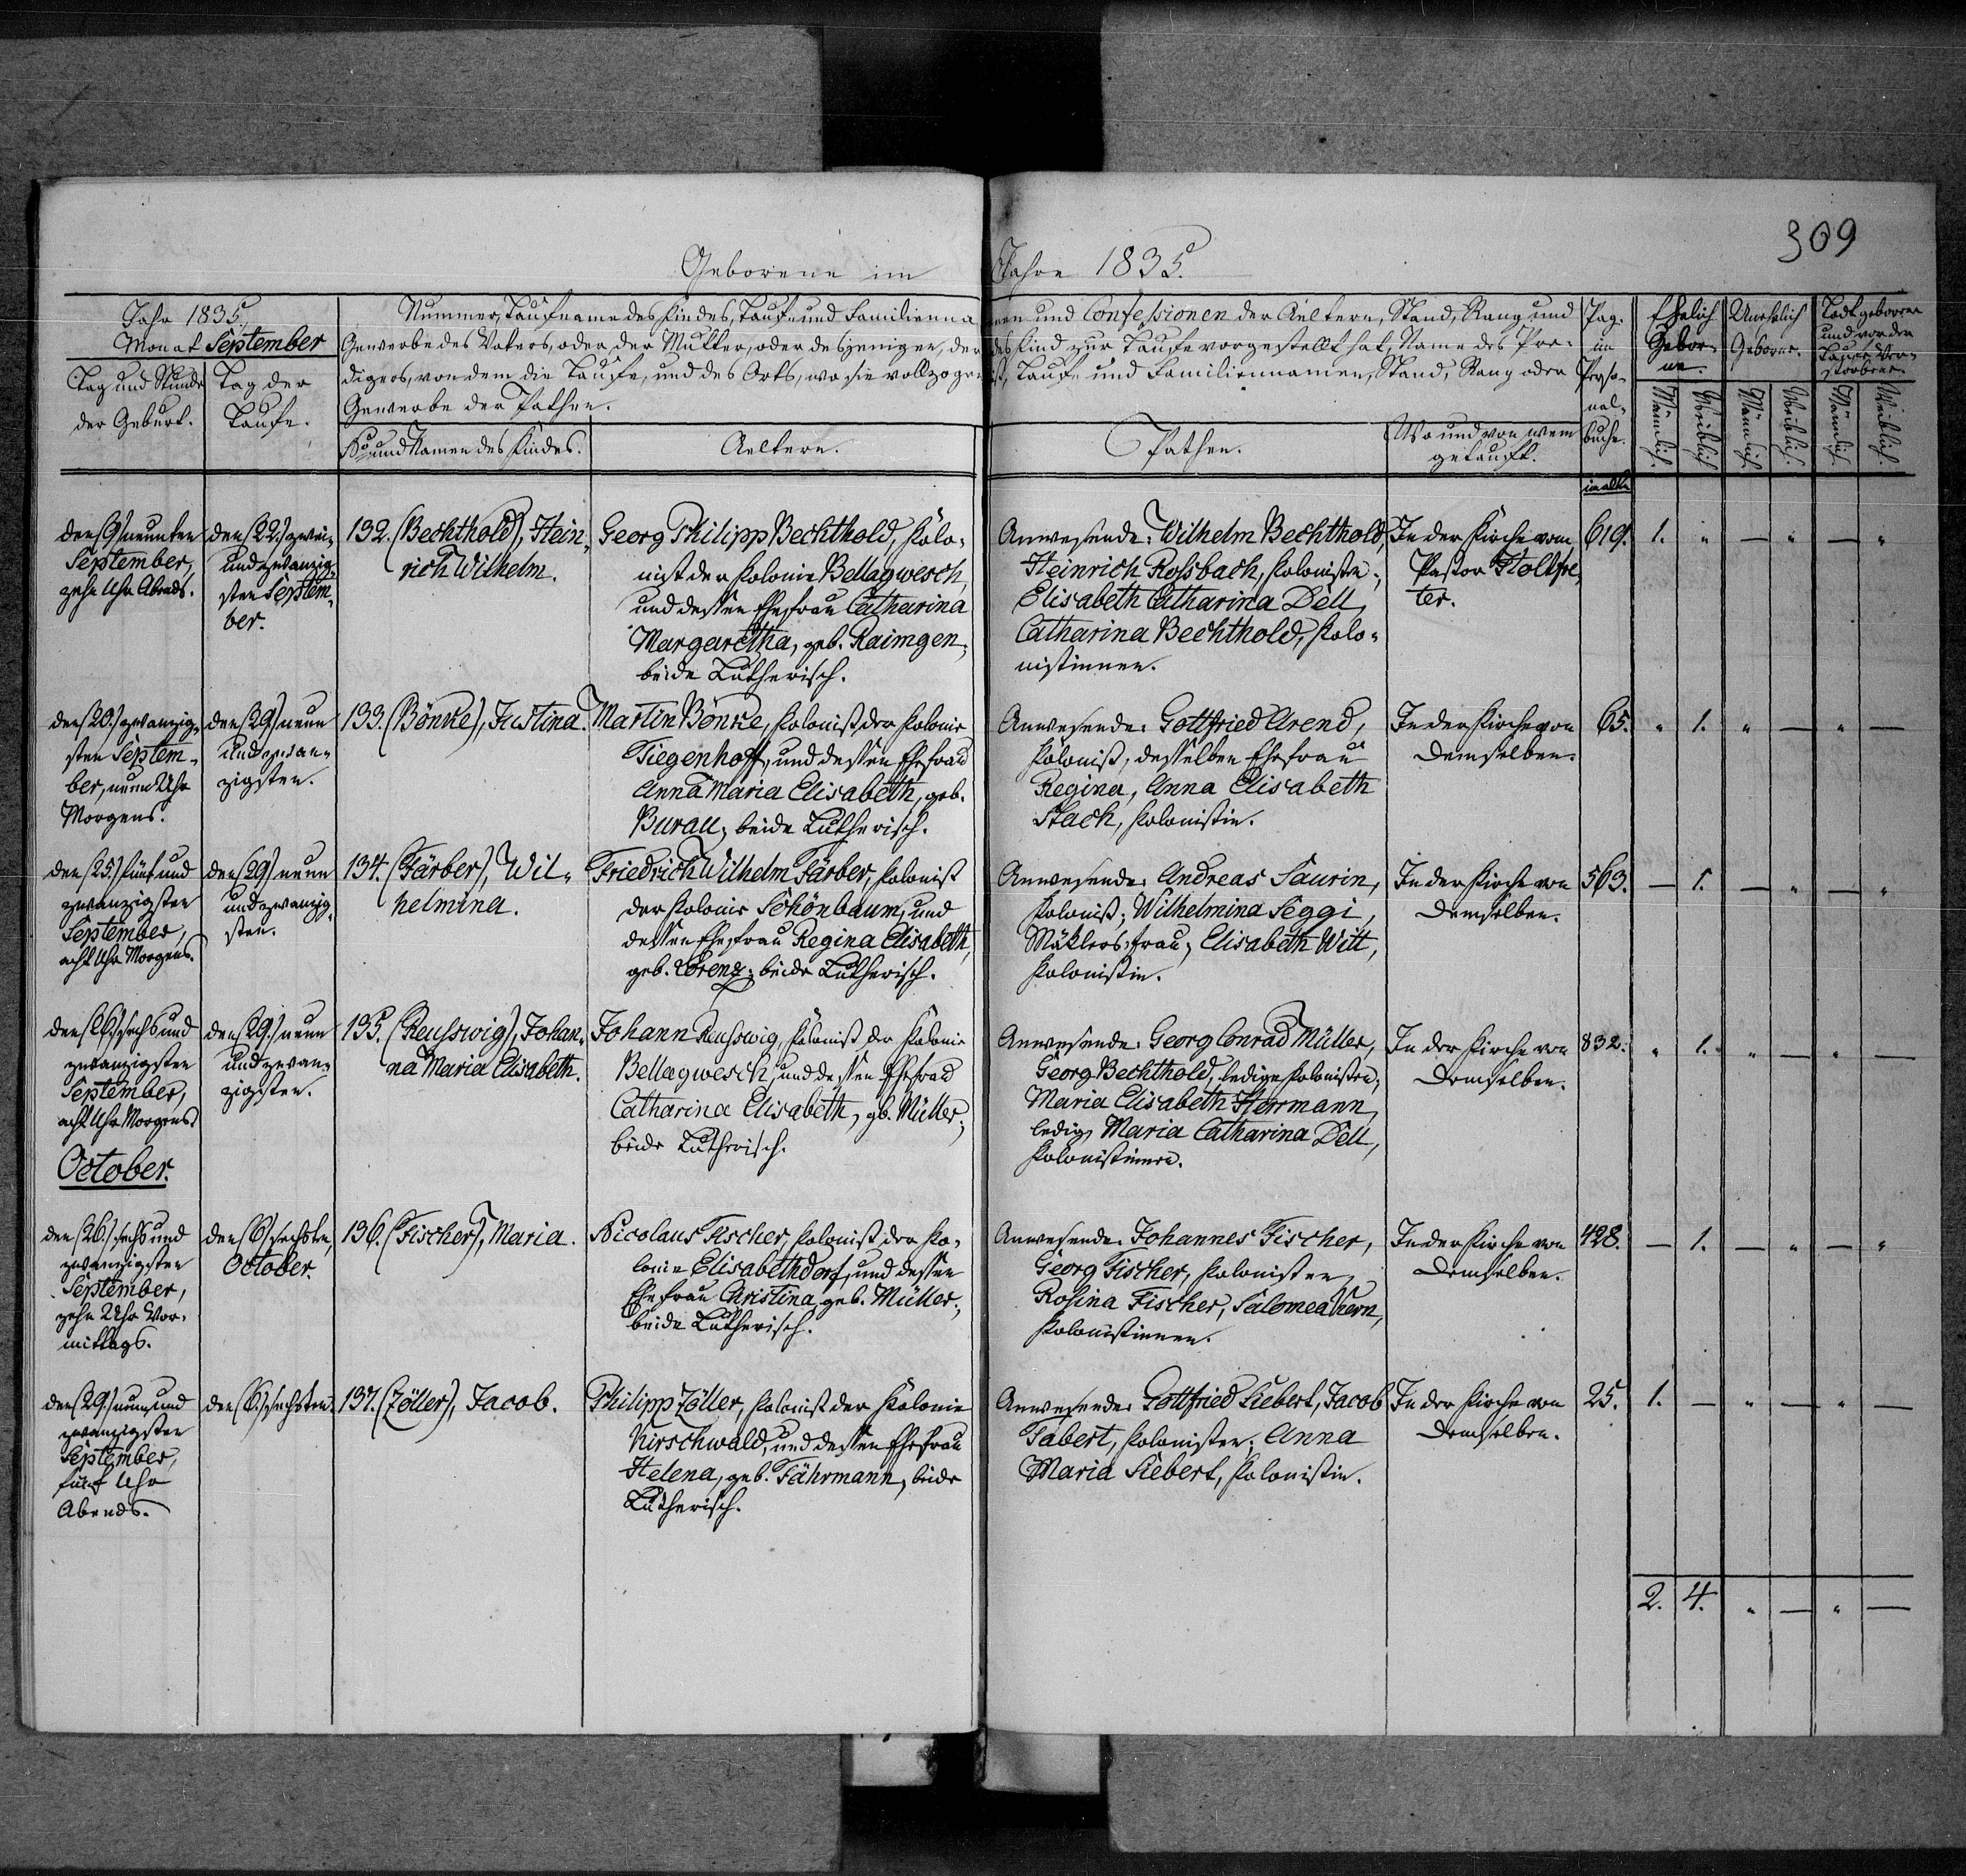 309
Geborene im Jahre 1835.
Jahr 1835.
Monat September
Tag und Stunde der Geburt.
Tag der Taufe.
Nummer, Taufname des Kindes, Tauf- und Familiennamen und Confessionen der Aeltern, Stand, Rang und
Gewerbe des Vaters, oder der Mutter, oder desjenigen, der das Kind zur Taufe vorgestellt hat, Name des Pre-
digers, von dem die Taufe, und des Orts, wo sie vollzogen ist, Tauf- und Familiennamen, Stand, Rang oder
Gewerbe der Pathen.
No und Namen des Kindes.
Aeltern.
Pathen.
Wo und von wem
getauft.
Pag.
im
Perso-
nal-
buche.
Ehelich
Gebor-
ne.
Unehelich
Geborne.
Todtgeborene
und vor der
Taufe Ver-
storbene.
Männlich.
Weiblich.
Männlich.
Weiblich.
Männlich.
Weiblich.
im alten
den (9) neunten
September,
zehn Uhr Abends.
den (22.) zwei-
und zwanzig-
sten Septem-
ber.
132. (Bechthold), Hein-
rich Wilhelm.
Georg Philipp Bechthold, Kolo-
nist der Kolonie Bellagwesch,
und dessen Ehefrau Catharina
Margaretha, geb. Raimgen,
beide Lutherisch.
Anwesende: Wilhelm Bechthold,
Heinrich Rossbach, Kolonisten;
Elisabeth Catharina Dell,
Catharina Bechthold, Kolo-
nistinnen.
In der Kirche vom
Pastor Holtfre-
ter.
619. 1. " — " — "
den (20.) zwanzig-
sten Septem-
ber, neun Uhr
Morgens.
den (29) neun
und zwan-
zigsten.
133. (Bönke), Justina.
Martin Bönke, Kolonist der Kolonie
Tiegenhoff, und dessen Ehefrau
Anna Maria Elisabeth, geb.
Burau, beide Lutherisch.
Anwesende: Gottfried Arend,
Kolonist, desselben Ehefrau
Regina, Anna Elisabeth
Stach, Kolonistin.
In der Kirche von
Demselben.
65. " 1. " — " —
den (25.) fünf und
zwanzigsten
September,
acht Uhr Morgens.
den (29) neun
und zwanzig-
sten.
134. (Färber), Wil-
helmina.
Friedrich Wilhelm Färber, Kolonist
der Kolonie Schönbaum, und
dessen Ehefrau Regina Elisabeth,
geb. Lorenz; beide Lutherisch.
Anwesende: Andreas Saurin,
Kolonist; Wilhelmina Seggi,
Mäklersfrau; Elisabeth Witt,
Kolonistin.
In der Kirche von
Demselben.
563. — 1. — " — "
den (26.) sechs und
zwanzigsten
September,
acht Uhr Morgens
den (29.) neun
und zwan-
zigsten.
135. (Reusswig), Johan-
na Maria Elisabeth.
Johann Reusswig, Kolonist der Kolonie
Bellagwesch, und dessen Ehefrau
Catharina Elisabeth, gb. Müller;
beide Lutherisch.
Anwesende: Georg Conrad Müller,
Georg Bechthold, ledige Kolonisten;
Maria Elisabeth Herrmann,
ledig, Maria Catharina Dell,
Kolonistinnen.
In der Kirche von
Demselben.
832. " 1. " — " —
October.
den (26.) sechs und
zwanzigsten
September,
zehn Uhr Vor-
mittags.
den (6) sechsten
October.
136. (Fischer), Maria.
Nicolaus Fischer, Kolonist der Ko-
lonie Elisabethdorf, und dessen
Ehefrau Christina, geb. Müller;
beide Lutherisch.
Anwesende: Johannes Fischer,
Georg Fischer, Kolonisten,
Rosina Fischer, Salomea Kern,
Kolonistinnen.
In der Kirche von
Demselben.
428. — 1. — " — "
den (29.) neun und
zwanzigsten
September,
fünf Uhr
Abends.
den (6.) sechsten.
137. (Zöller), Jacob.
Philipp Zöller, Kolonist der Kolonie
Kirschwald, und dessen Ehefrau
Helena, geb. Fährmann, beide
Lutherisch.
Anwesende: Gottfried Siebert, Jacob
Tabert, Kolonisten; Anna
Maria Siebert, Kolonistin.
In der Kirche von
Demselben.
25. 1. — " — " —
2. 4. " — " —